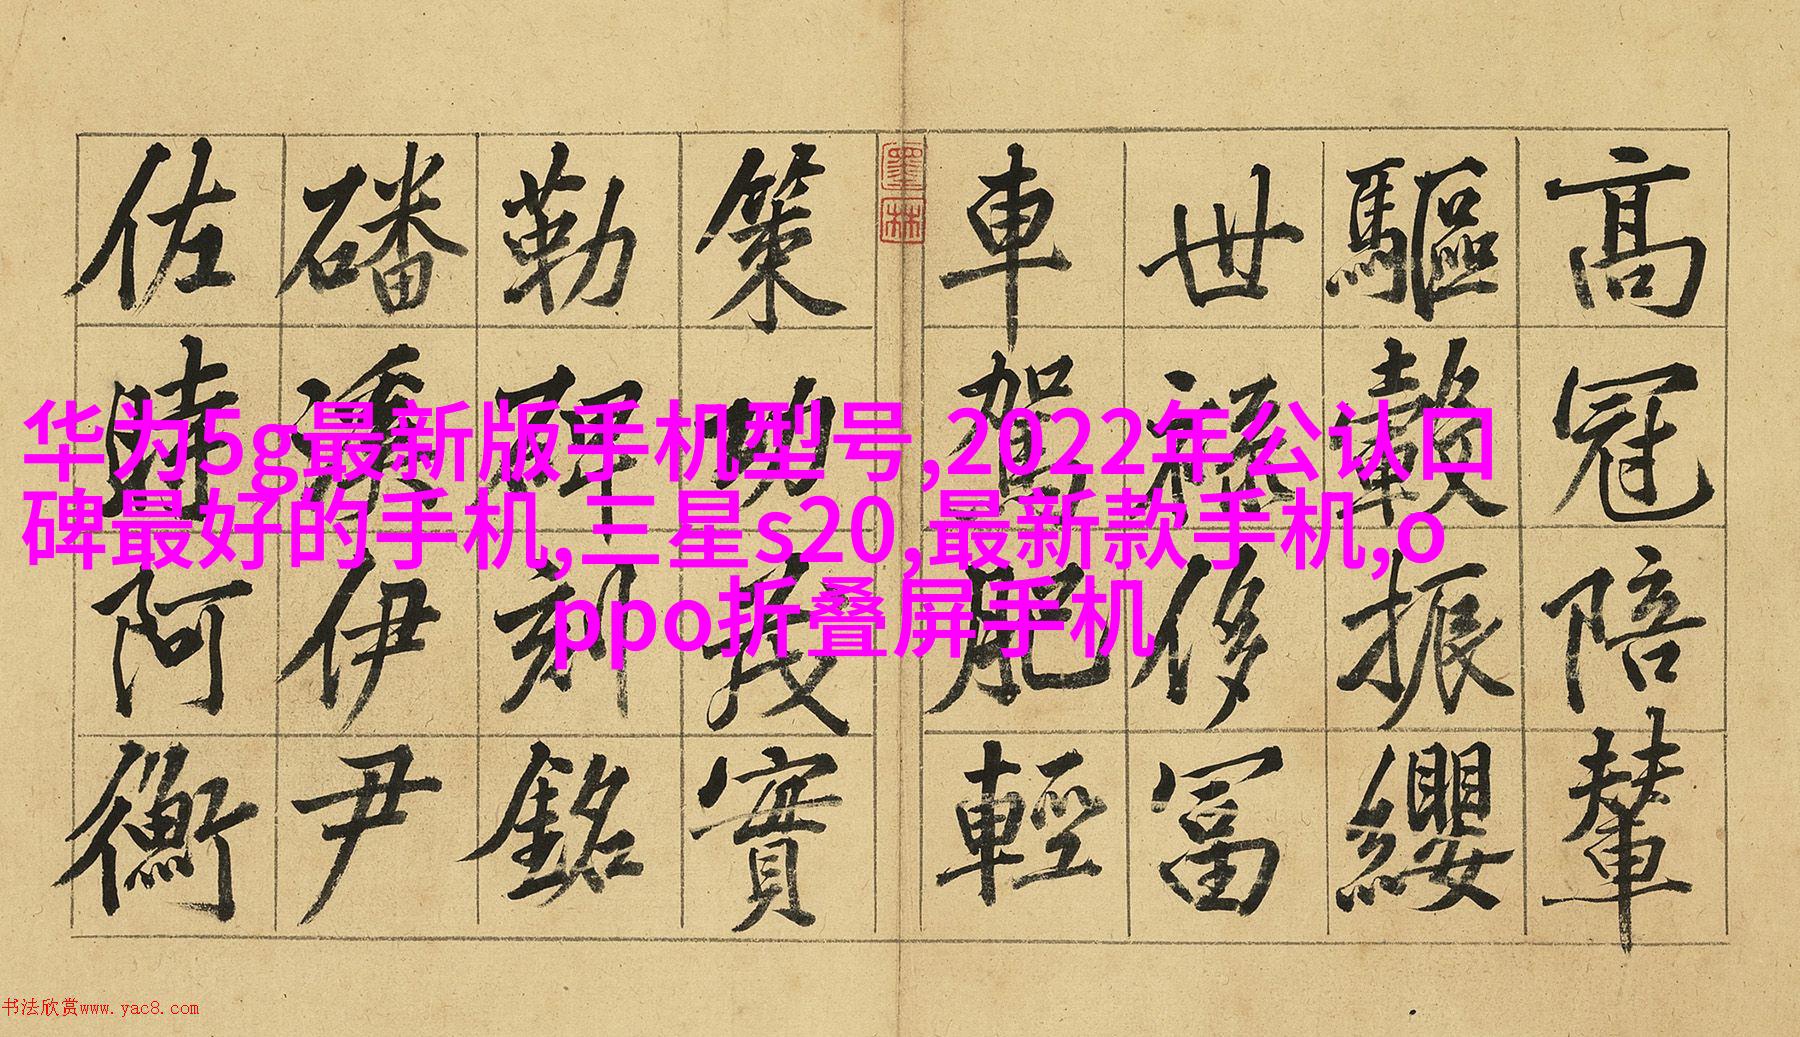 高冠陪輦
驅轂振纓
世祿侈富
車駕肥輕
墨林
策功茂實
勒碑刻銘
磻溪伊尹
佐時阿衡
华为5g最新版手机型号,2022年公认口
碑最好的手机,三星s20,最新款手机,o
ppo折叠屏手机
书法欣赏www.yac8.com